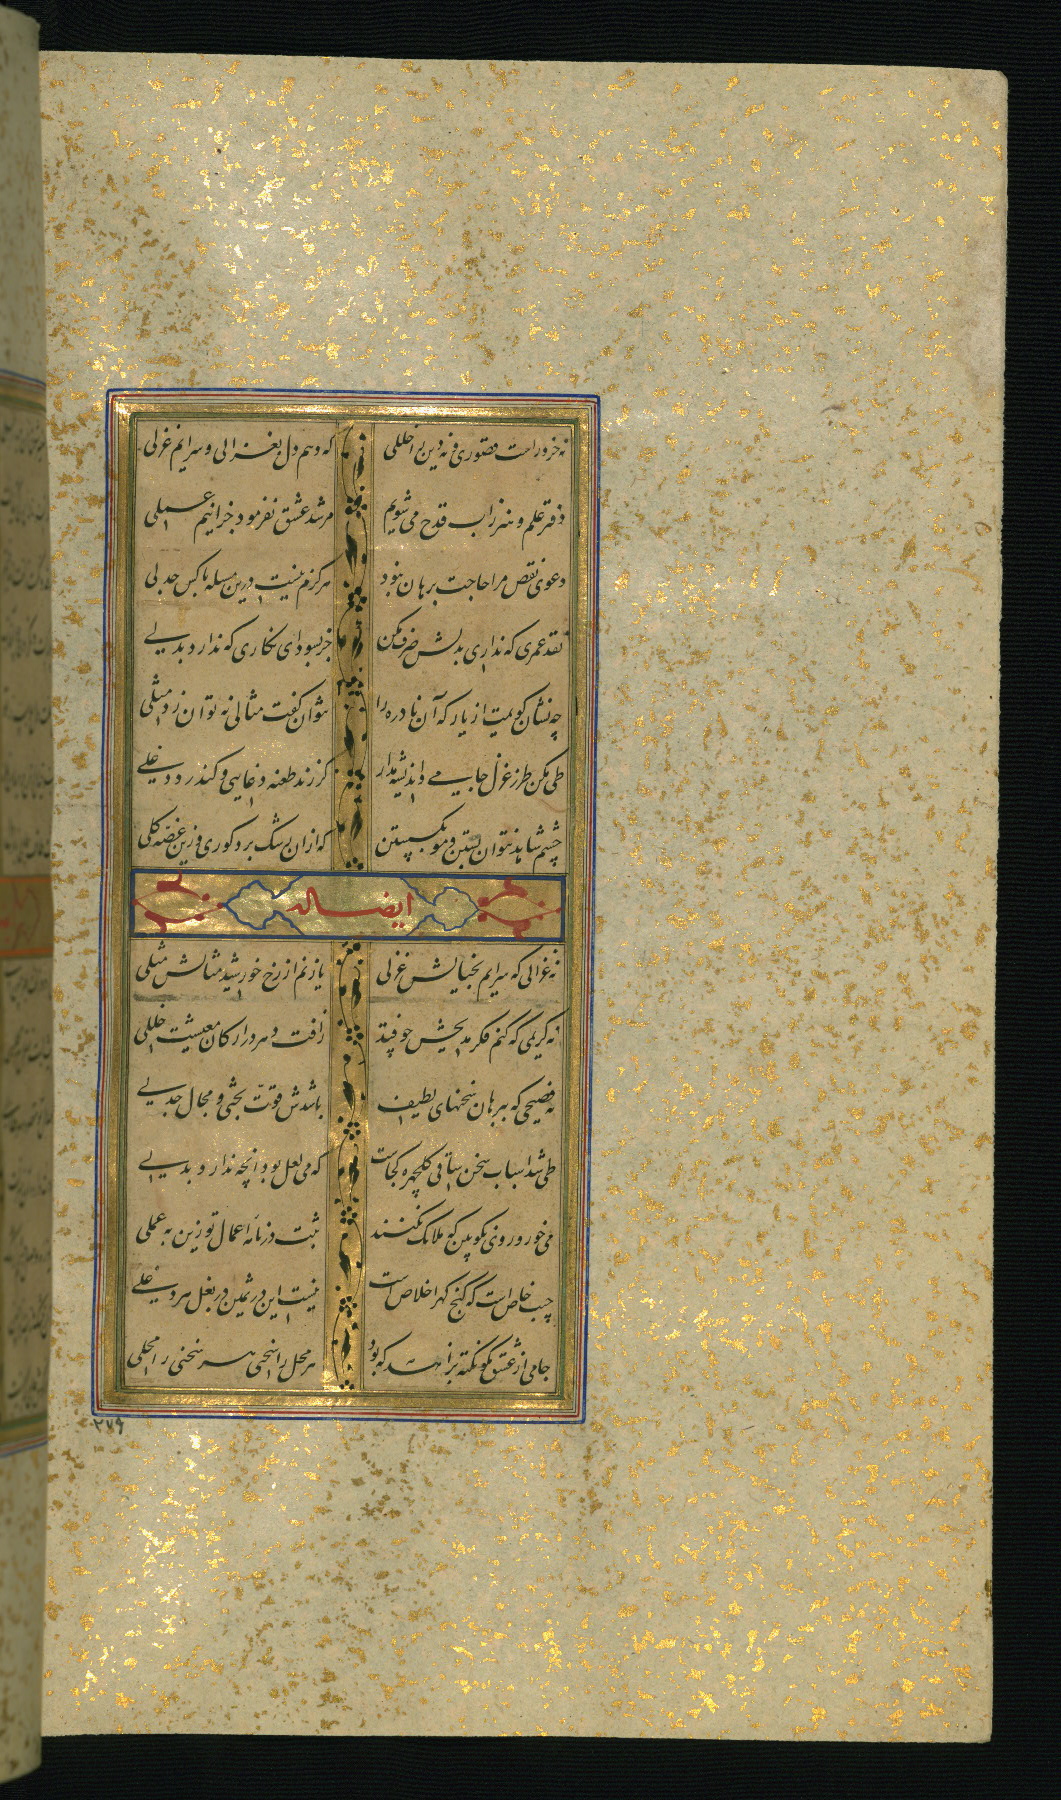 نه خرد راست قصوری نه دین را خللی
که دهم دل بغزالی و سرایم غزلی
دفتر علم و هنر زاب قدح می شویم
مرشد عشق نفرمود جز اینم عملی
دعوی نقص مرا حاجت برهان نبود
هرگزم نیست درین مسله با کس جدلی
نقد عمری که نداری بدلش صرف مکن
جز بسودای نکاری که ندارد بدلی
چه نشان گویمت از یار که آن نادره را
نتوان گفت مثالی نه توان زد مثلی
طی مکن طرز غزل جامی و اندیشه مدار
گر زند طعنه دغایی و کند رد دغلی
چشم شاهد نتوان بستن و مو بگسستن
که ازان رشک برد کوری و زین غصه کلی
ایضا له
نه غزالی که سرایم بخیالش غزلی
یا زنم از رخ خورشید مثالش مثلی
نه کریمی که کنم فکر مدیحش چو فتد
زافت دهر در ارکان معیشت خللی
نه فصیحی که ببرهان سخنهای لطیف
باشدش قوت بحثی و مجال جدلی
طی شد اسباب سخن ساقی گلچهره کجاست
که می لعل بود آنچه ندارد بدلی
می خور و روی نکو بین که ملائک نکنند
ثبت در نامه اعمال تو زین به عملی
جیب خاص است که گنج گهر اخلاص است
نیست این در ثمین در بغل هر دغلی
جامی از عشق گو نکته بزاهد که بود
هر محل را سخنی هر سخنی را محلی
۲۷۹